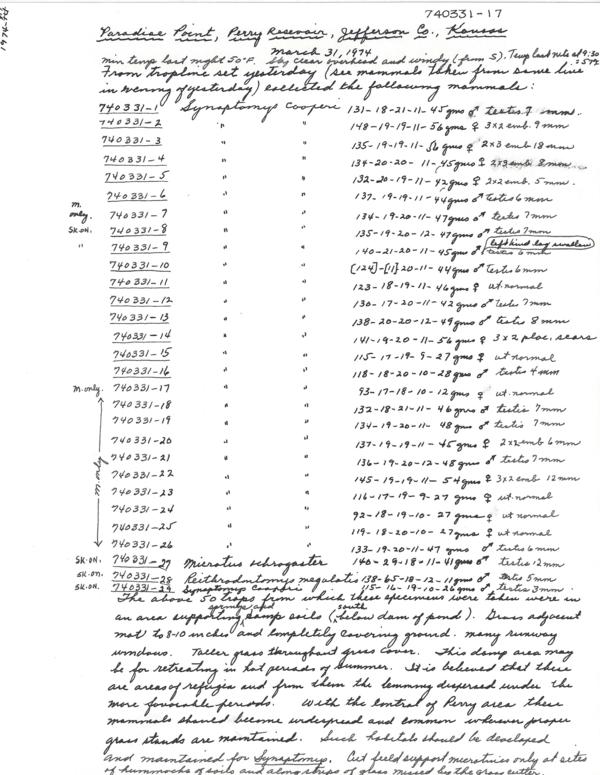 740331-17
1974
Paradise Point, Perry Resevoir, Jefferson Co., Kansas
March 31, 1974
min temp last night 50°F. Sky clear overhead and windy (from S). Temp last nite at 9:30 = 57°F
From trapline set yesterday (see mammals taken from same line
in evening of yesterday) collected the following mammals:
740331-1 Synaptomys Cooperi 131-18-21-11-45gms ♂ testes 7 mm.
740331-2 " " 148-19-19-11-56gms ♀ 3x2 emb. 9mm
740331-3 " " 135-19-19-11-56gms ♀ 2x3 emb 18mm
740331-4 " " 134-20-20-11-45gms ♀ 2x3 emb 8mm
740331-5 " " 132-20-19-11-42gms ♀ 2x2 emb. 5mm.
740331-6 " " 137-19-19-11-44gms ♂ testis 6mm
m. only. 740331-7 " " 134-19-20-11-47gms ♂ testis 7mm
SK.ON. 740331-8 " " 135-19-20-12-47gms ♂ testis 7mm
" 740331-9 " " 140-21-20-11-45gms ♂ testis 6mm (left hind leg swollen)
740331-10 " " [124]-[11]-20-11-44gms ♂ testis 6mm
740331-11 " " 123-18-19-11-46gms ♀ ut. normal
740331-12 " " 130-17-20-11-42gms ♂ testis 7mm
740331-13 " " 138-20-20-12-49gms ♂ testis 8mm
740331-14 " " 141-19-20-11-56gms ♀ 3x2 plac. scars
740331-15 " " 115-17-19-9-27gms ♀ ut normal
740331-16 " " 118-18-20-10-28gms ♂ testis 4mm
m. only. 740331-17 " " 93-17-18-10-12gms ♀ ut. normal
740331-18 " " 132-18-21-11-46gms ♂ testis 7mm
740331-19 " " 134-19-20-11-48gms ♂ testis 7mm
740331-20 " " 137-19-19-11-45gms ♀ 2x2 emb 6mm
m only 740331-21 " " 136-19-20-12-48gms ♂ testis 7mm
740331-22 " " 145-19-19-11-54gms ♀ 3x2 emb 12mm
740331-23 " " 116-17-19-9-27gms ♀ ut. normal
740331-24 " " 92-18-19-10-27gms ♀ ut normal
740331-25 " " 119-18-20-10-27gms ♀ ut normal
740331-26 " " 133-19-20-11-47gms ♂ testis 6mm
SK.ON. 740331-27 Microtus ochrogaster 140-29-18-11-41gms ♂ testis 12mm
SK.ON. 740331-28 Reithrodontomys megalotis 138-65-18-12-11gms ♂ testis 5mm
SK.ON. 740331-29 Synaptomys Cooperi 115-16-19-10-26gms ♂ testis 3mm
The above 50 traps from which these specimens were taken were in
an area supporting springs and damp soils (south below dam of pond). Grass adjacent
mat to 8-10 inches and completely covering ground. many runway
windows. Taller grass throughout grass cover. This damp area may
be for retreating in hot periods of summer. It is believed that these
are areas of refugia and from them the lemming dispersed under the
more favorable periods. With the control of Perry area these
mammals should become widespread and common wherever proper
grass stands are maintained. Such habitats should be developed
and maintained for Synaptomys. Cut field support microtines only at sites
of hummocks of soils and along strips of grass missed by the grass cutter